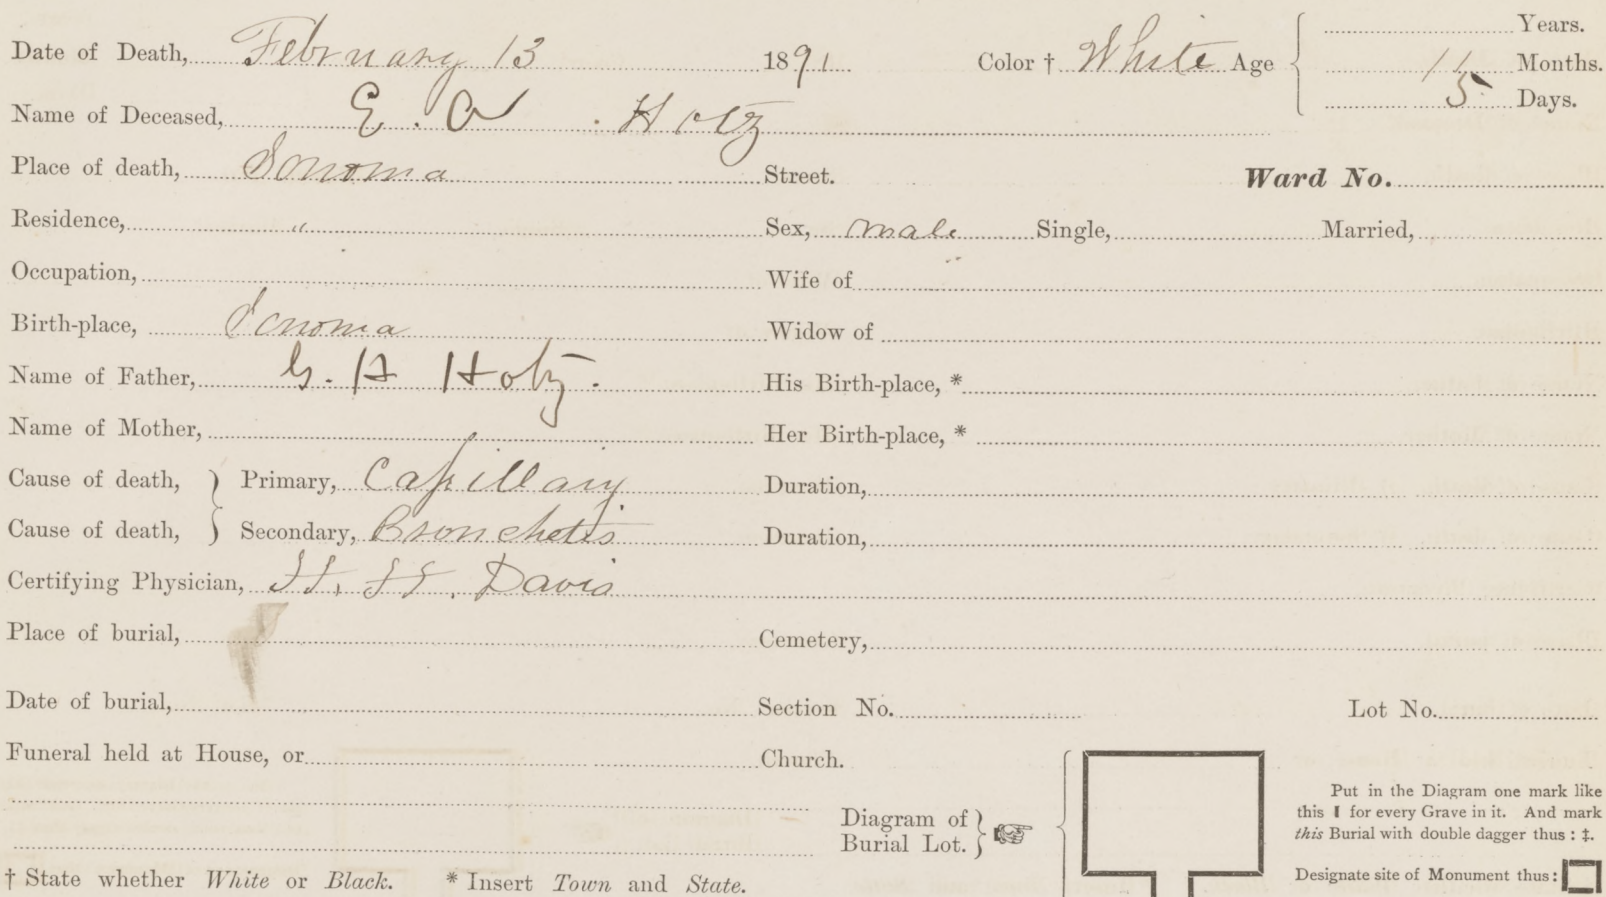 Date of Death, February 13 1891 Color † White Age Years.
11 Months.
5 Days.
Name of Deceased, E. A. Hotz
Place of death, Sonoma Street. Ward No.
Residence, " Sex, male Single, Married,
Occupation, Wife of
Birth-place, Sonoma Widow of
Name of Father, G. H Hotz. His Birth-place, *
Name of Mother, Her Birth-place, *
Cause of death, Primary, Capillary Duration,
Cause of death, Secondary, Bronchetis Duration,
Certifying Physician, H. H. Davis
Place of burial, Cemetery,
Date of burial, Section No. Lot No.
Funeral held at House, or Church.
Diagram of
Burial Lot.
Put in the Diagram one mark like
this I for every Grave in it. And mark
this Burial with double dagger thus: ‡.
Designate site of Monument thus:
† State whether White or Black. * Insert Town and State.